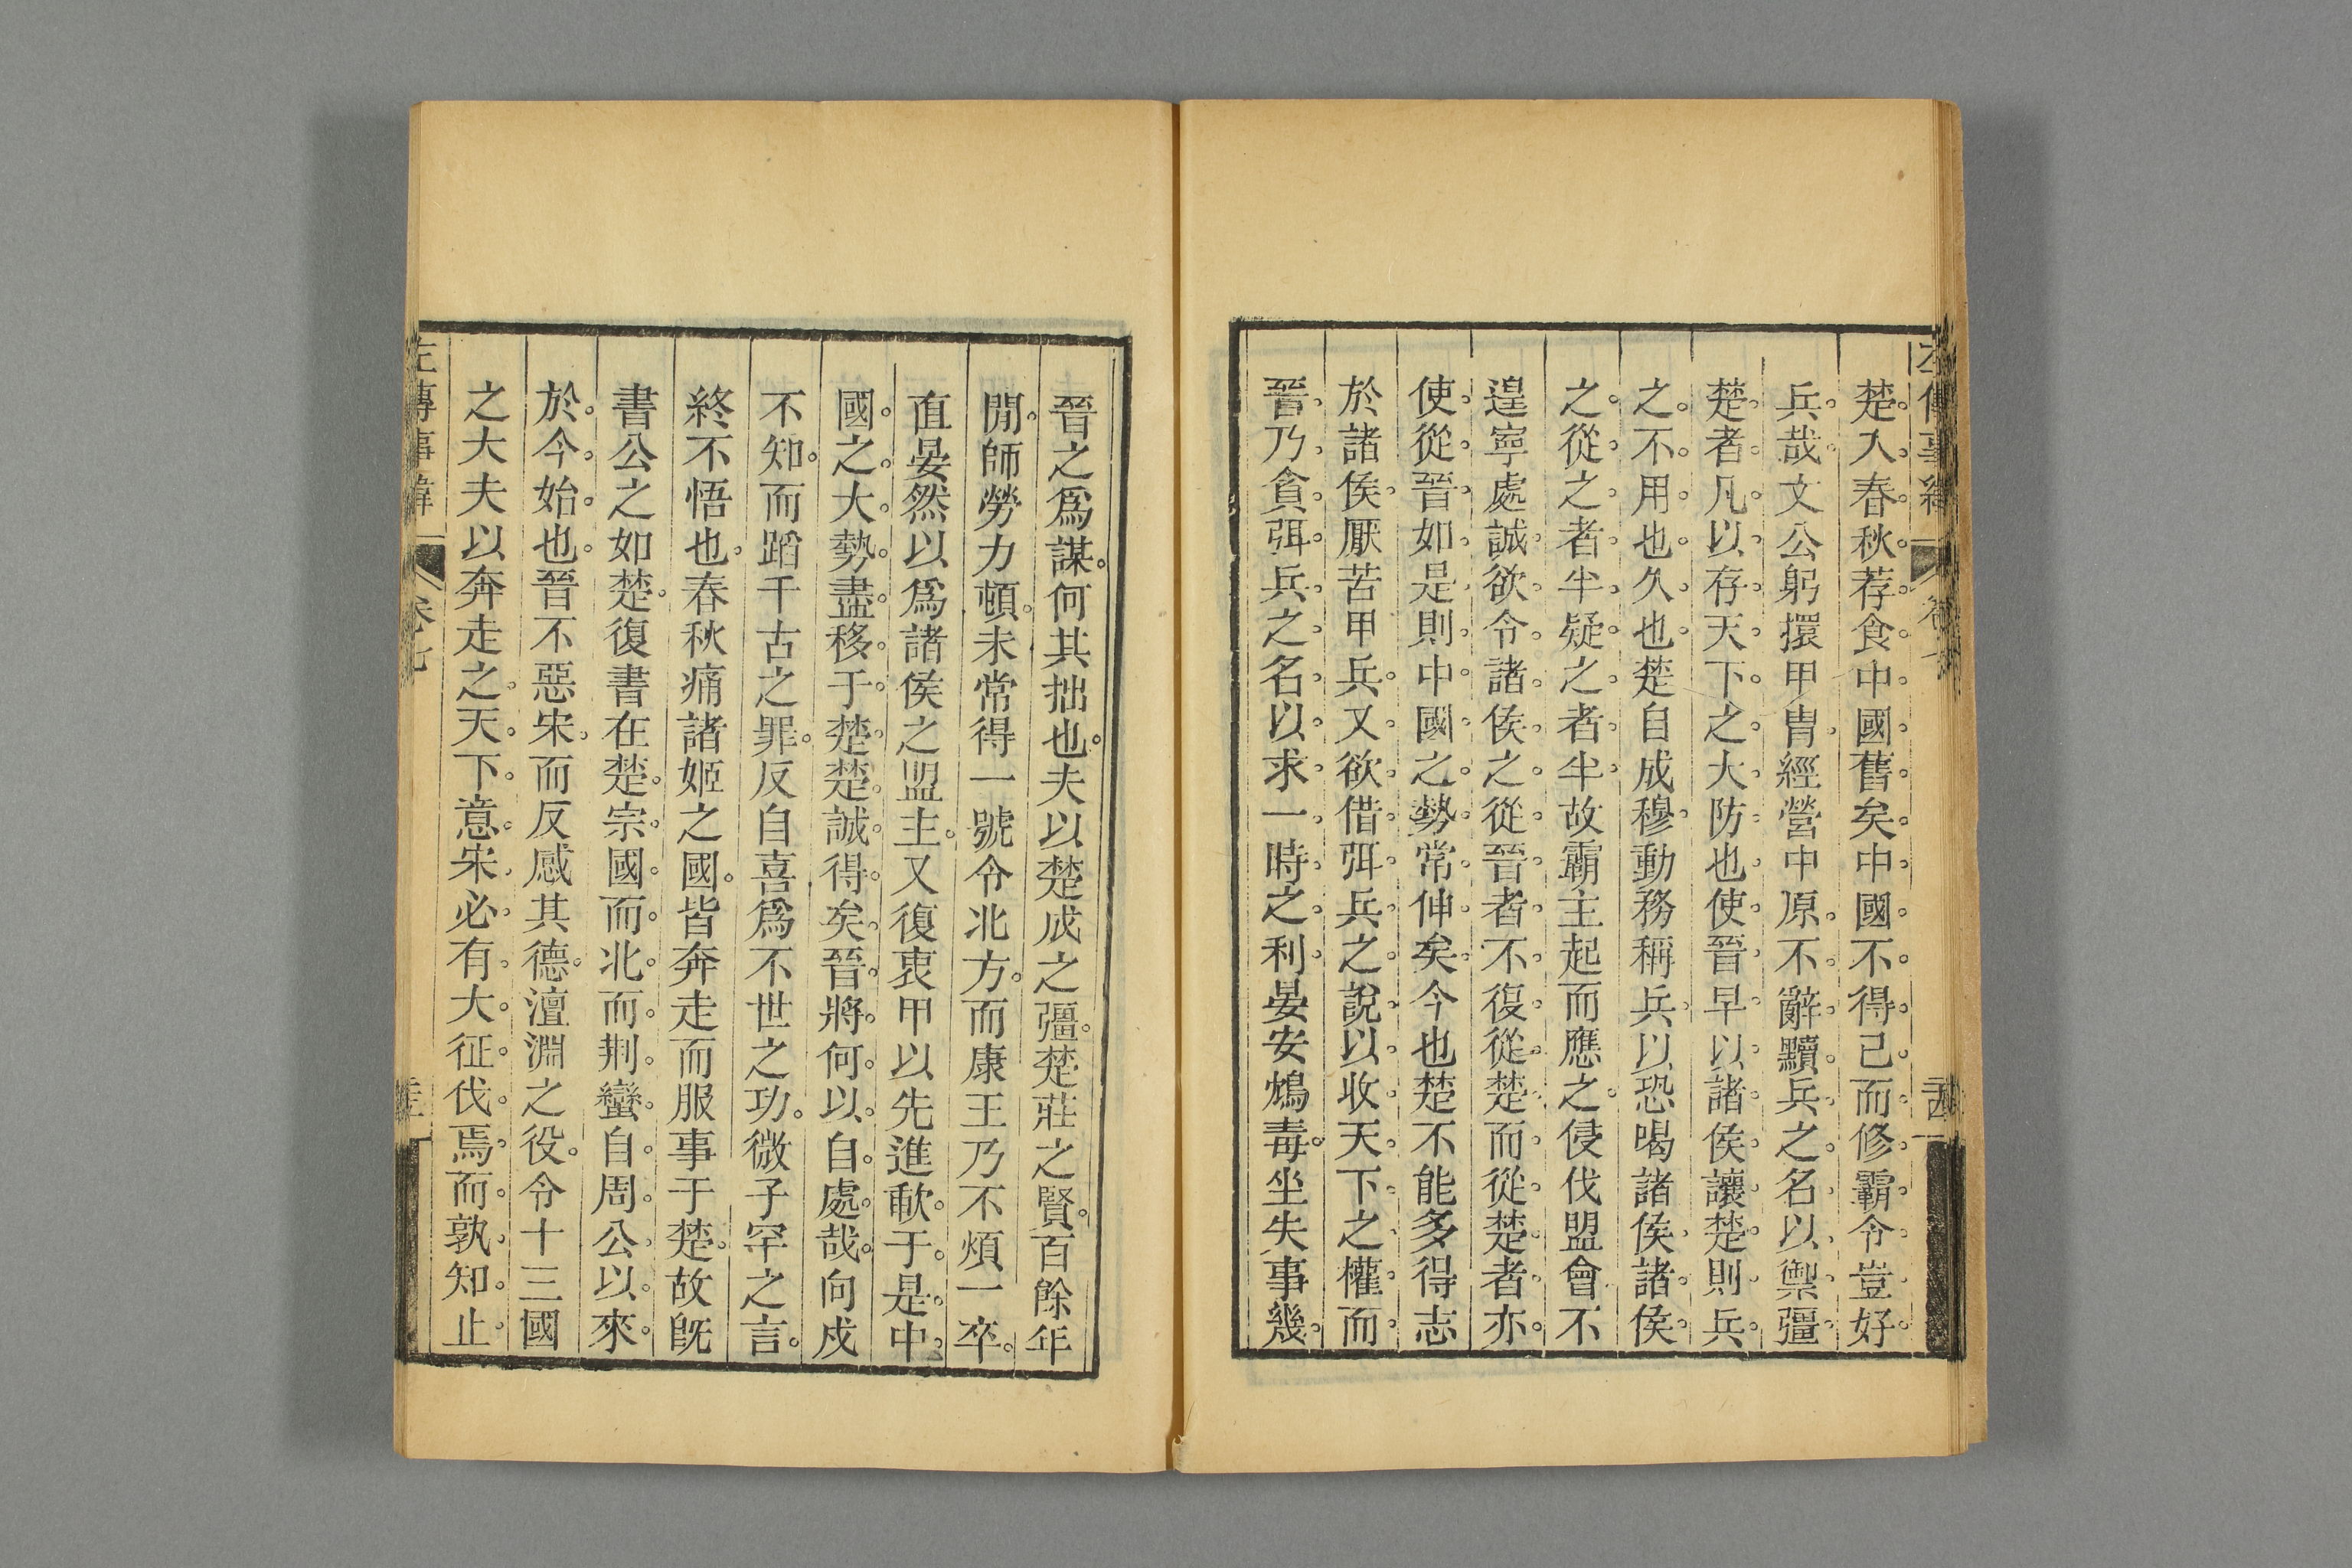 楚入春秋荐食中國舊矣中國不得已而修霸令豈好
兵哉文公躬擐甲冑經營中原不辭黷兵之名以禦彊
楚者凡以存天下之大防也使晉早以諸侯讓楚則兵
之不用也久也楚自成穆動務稱兵以恐喝諸侯諸侯
之從之者半疑之者半故霸主起而應之侵伐盟會不
遑寧處誠欲令諸侯之從晉者不復從楚而從楚者亦
使從晉如是則中國之勢常伸矣今也楚不能多得志
於諸侯厭苦甲兵又欲借弭兵之說以收天下之權而
晉乃貪弭兵之名以求一時之利晏安鴆毒坐失事幾
晉之爲謀何其拙也夫以楚成之彊楚莊之賢百餘年
閒師勞力頓未常得一號令北方而康王乃不煩一卒
直晏然以爲諸侯之盟主又復衷甲以先進歃于是中
國之大勢盡移于楚楚誠得矣晉將何以自處哉向戍
不知而蹈千古之罪反自喜爲不世之功微子罕之言
終不悟也春秋痛諸姬之國皆奔走而服事于楚故旣
書公之如楚復書在楚宗國而北而荆蠻自周公以來
於今始也晉不惡宋而反感其德澶淵之役令十三國
之大夫以奔走之天下意宋必有大征伐焉而孰知止
左傳事緯
卷七